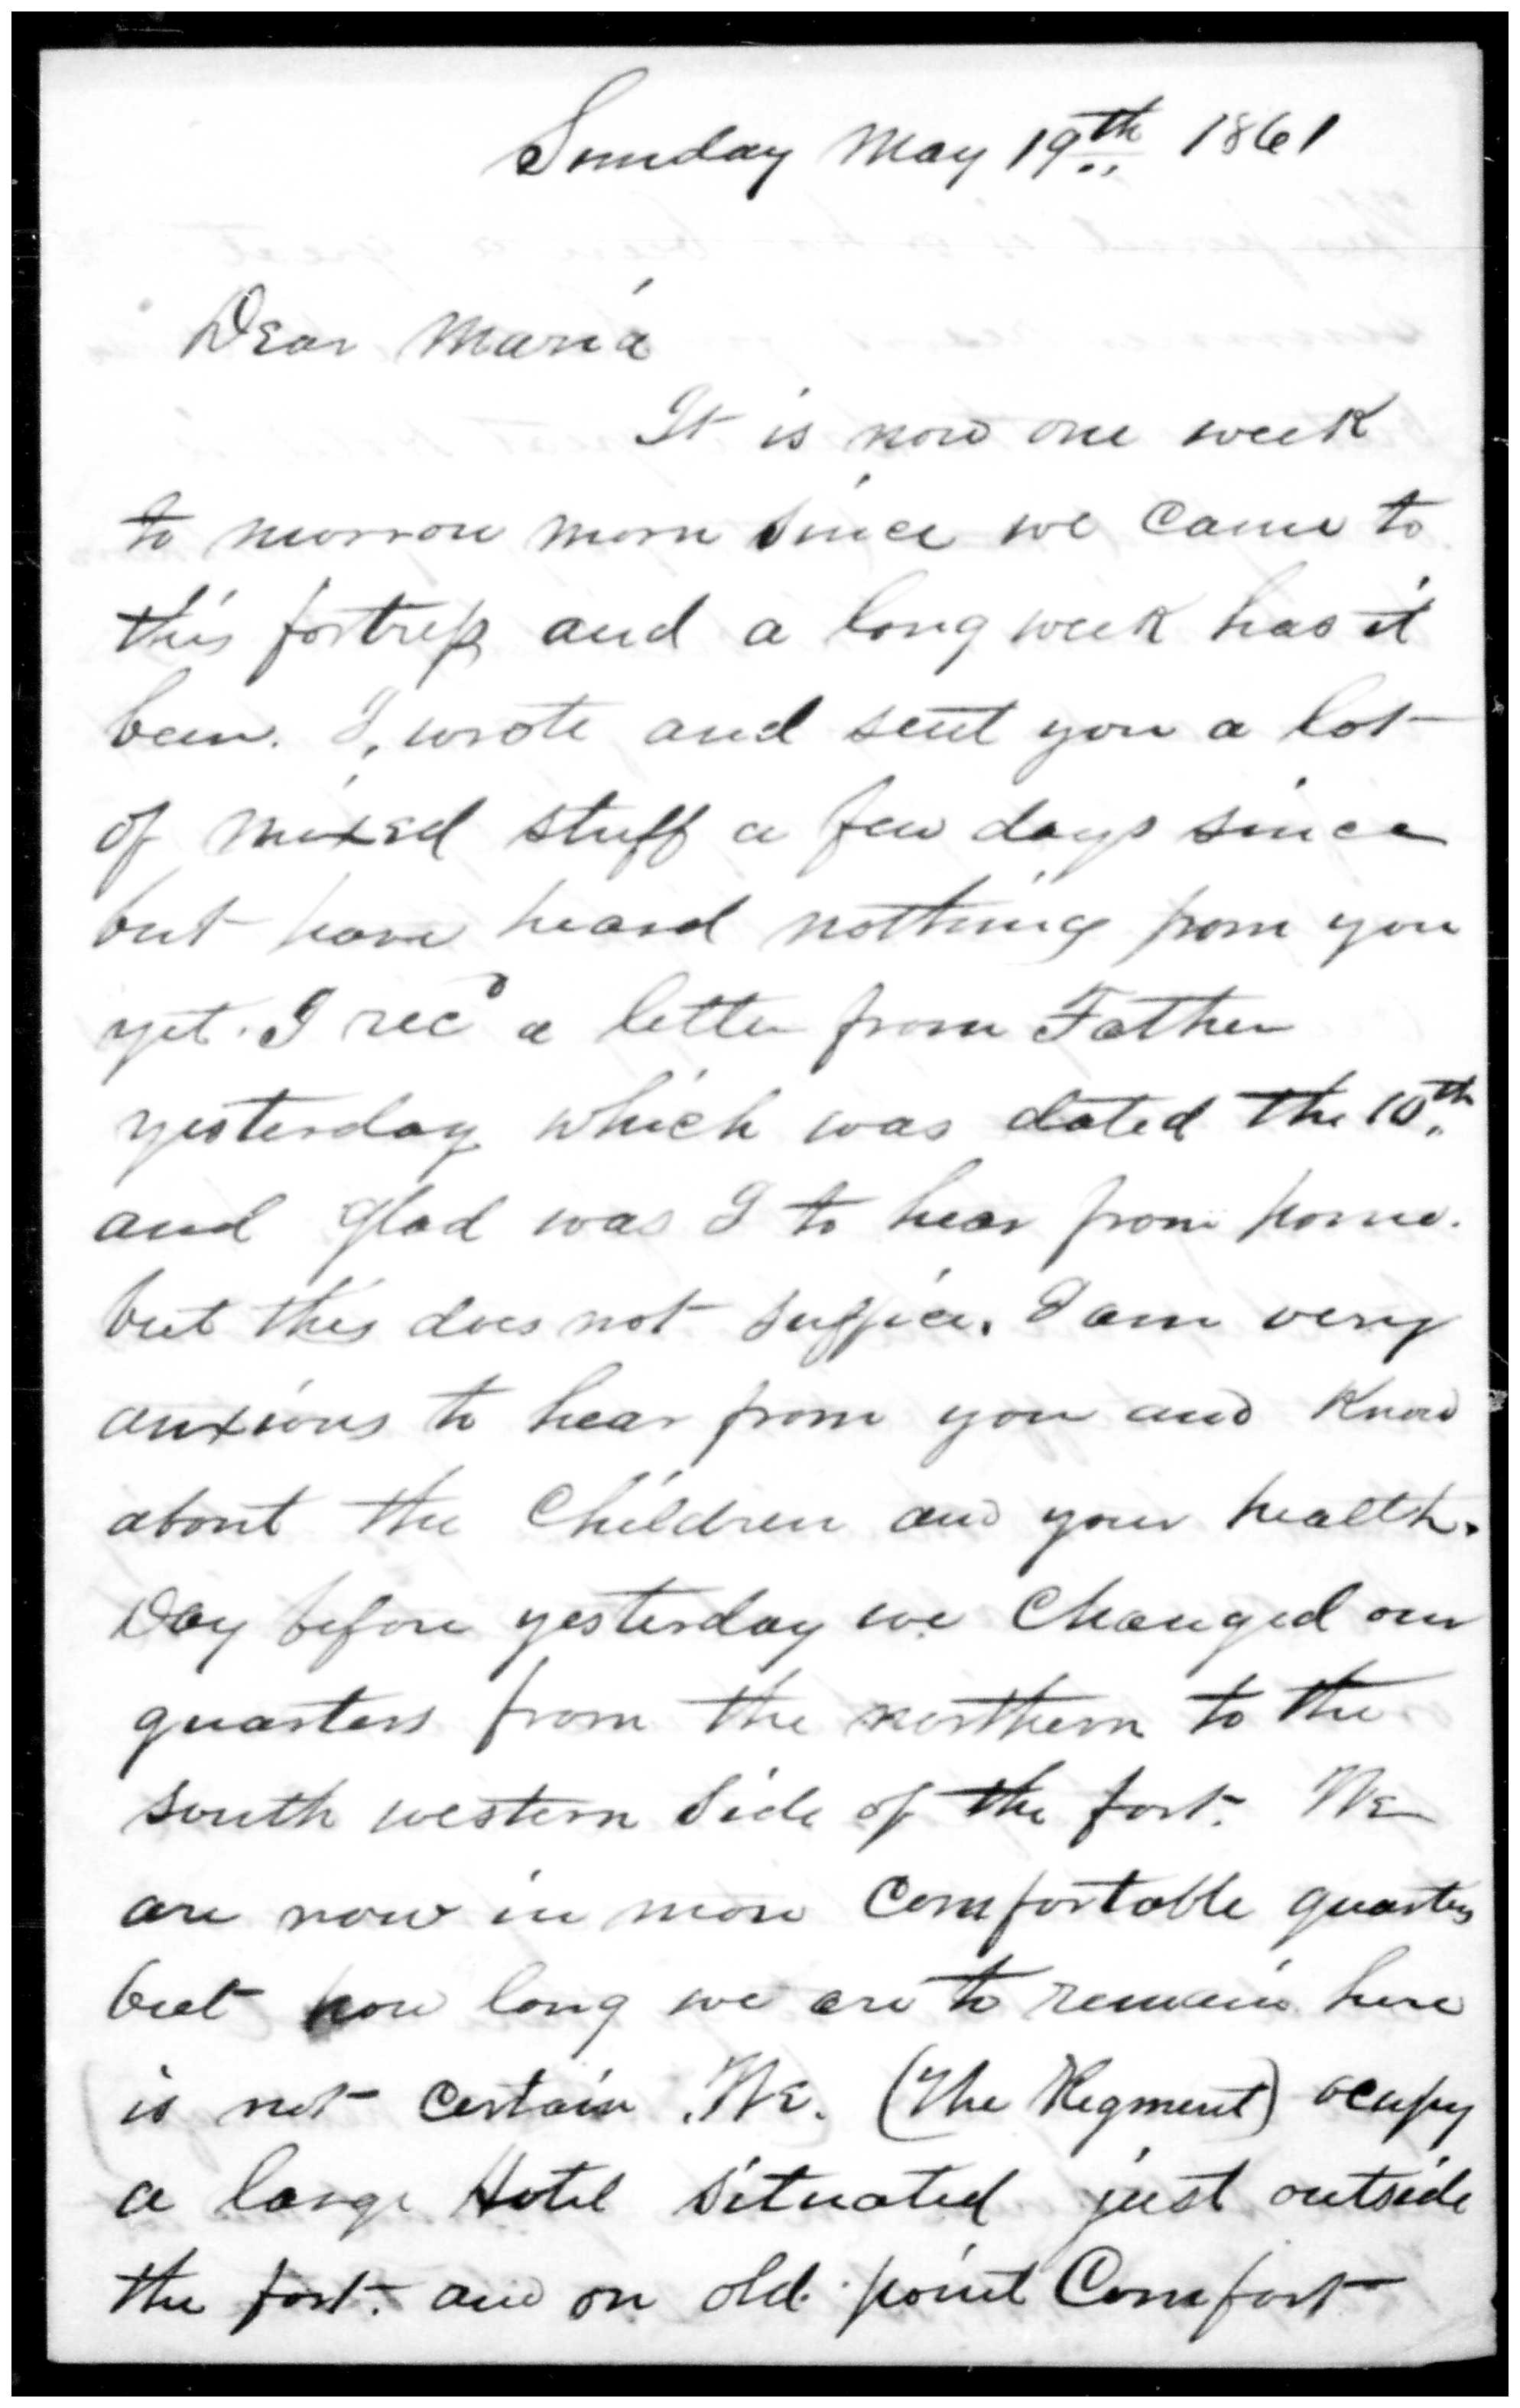 Sunday May 19th 1861
Dear Maria
It is now one week
to morrow morn since we came to
this fortress and a long week has it
been. I, wrote and sent you a lot
of mixed stuff a few days since
but have heard nothing from you
yet. I recd a letter from Father
yesterday which was dated the 10th
and glad was I to hear from home.
but this does not suffice. I am very
anxious to hear from you and Know
about the Children and your health.
Day before yesterday we Changed our
quarters from the northern to the
south western side of the fort. We
are now in more Comfortable quarters
but how long we are to remain here
is not Certain. We. (The Regment) ocupy
a large Hotel situated just outside
the fort. and on old point Comfort